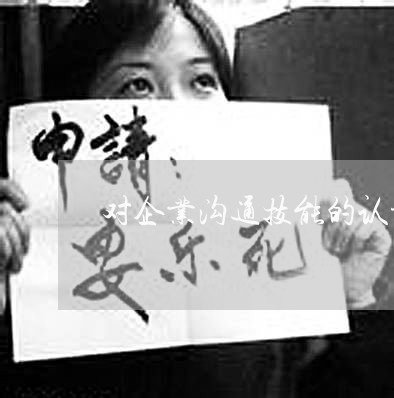 申請：
对企業沟通技能的认
安乐死